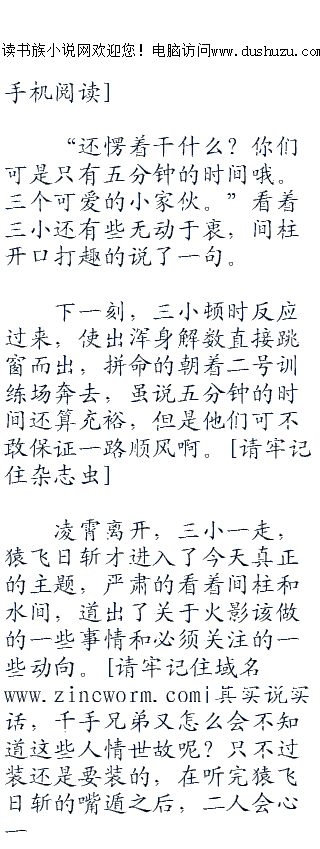 读书族小说网欢迎您！电脑访问www.dushuzu.com
手机阅读]
“还愣着干什么？你们
可是只有五分钟的时间哦。
三个可爱的小家伙。”看着
三小还有些无动于衷，间柱
开口打趣的说了一句。
下一刻，三小顿时反应
过来，使出浑身解数直接跳
窗而出，拼命的朝着二号训
练场奔去，虽说五分钟的时
间还算充裕，但是他们可不
敢保证一路顺风啊。[请牢记
住杂志虫]
凌霄离开，三小一走，
猿飞日斩才进入了今天真正
的主题，严肃的看着间柱和
水间，道出了关于火影该做
的一些事情和必须关注的一
些动向。[请牢记住域名
www.zincworm.com|其实说实
话，千手兄弟又怎么会不知
道这些人情世故呢？只不过
装还是要装的，在听完猿飞
日斩的嘴遁之后，二人会心
一